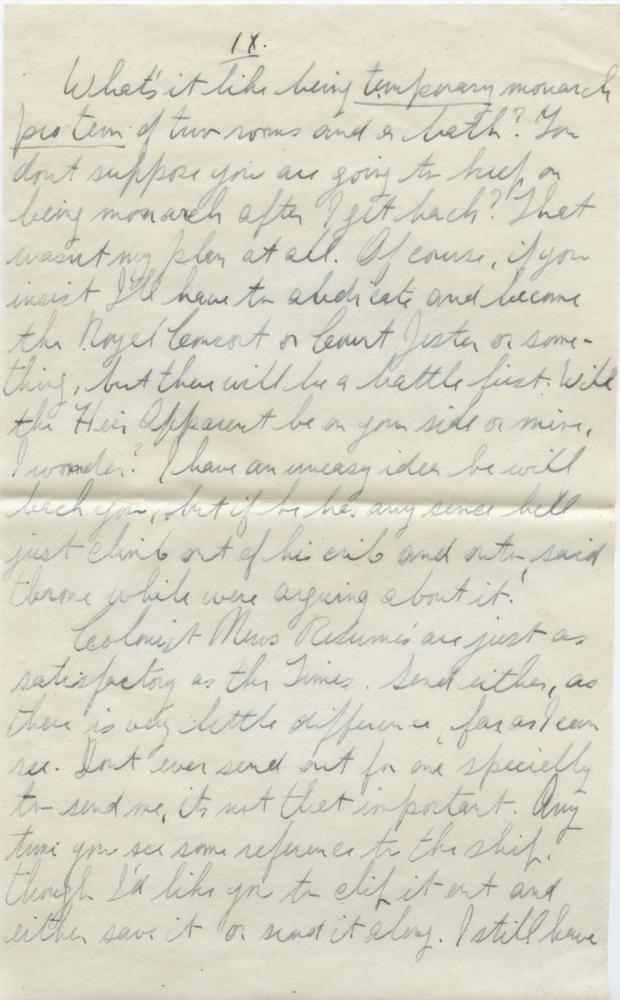 IX.
What's it like being temporary monarch
pro tem of two rooms and a bath? You
dont suppose you are going to keep on
being monarch after I get back? That
wasnt my plan at all. Of course, if you
insist I'll have to abdicate and become
the Royal Consort or Court Jester or some-
thing, but there will be a battle first. Will
the Heir Apparent be on your side or mine,
I wonder? I have an uneasy idea he will
back you, but if he has any sense hell
just climb out of his crib and onto said
throne while were arguing about it!
Colonist News Resumés are just as
satisfactory as the Times. Send either, as
there is very little difference, far as I can
see. Dont ever send out for one specially
to send me, its not that important. Any
time you see some reference to the ship,
though I'd like you to clip it out and
either save it or send it along. I still have